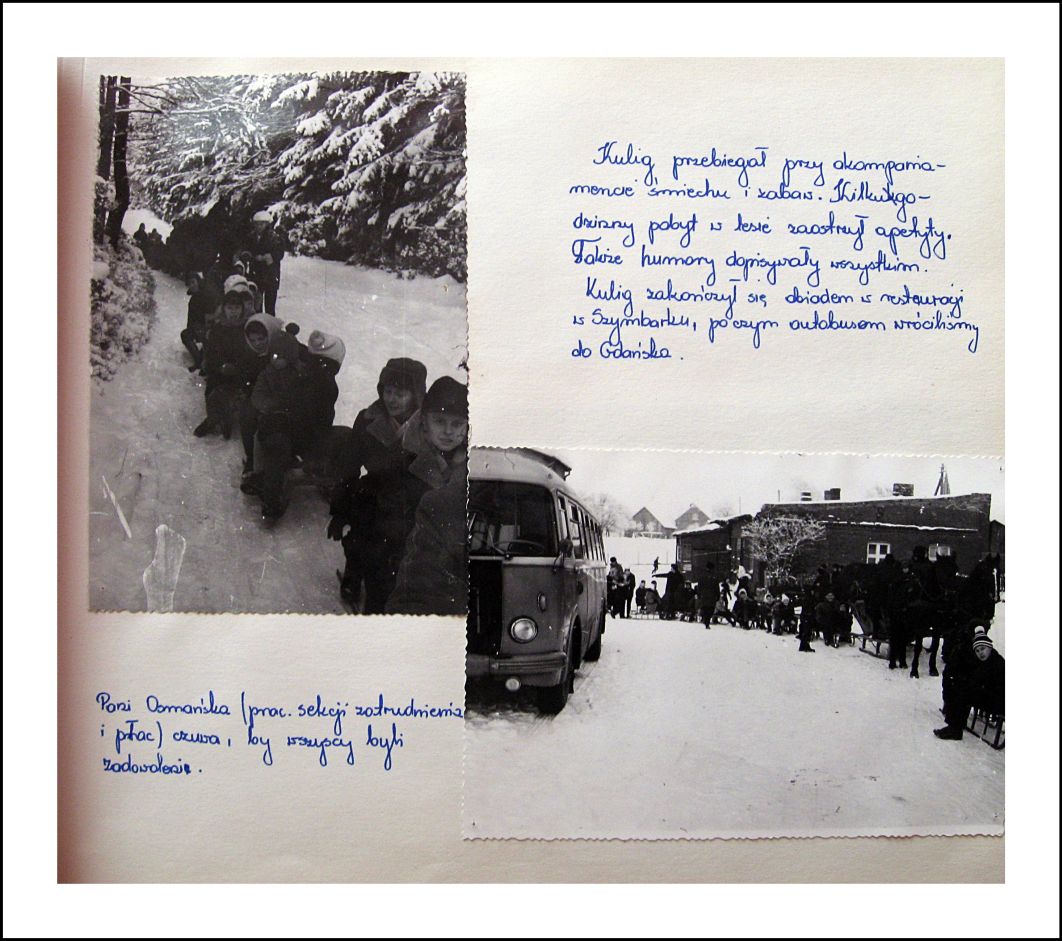 Kulig przebiegał przy akompania-
mencie śmiechu i zabaw. Kilkugo-
dzinny pobyt w lesie zaostrzył apetyty.
Także humory dopisywały wszystkim.
Kulig zakończył się obiadem w restauracji
w Szymbarku, po czym autobusem wróciliśmy
do Gdańska.
Pani Osmańska (prac. sekcji zatrudnienia
i płac) czuwa, by wszyscy byli
zadowoleni.